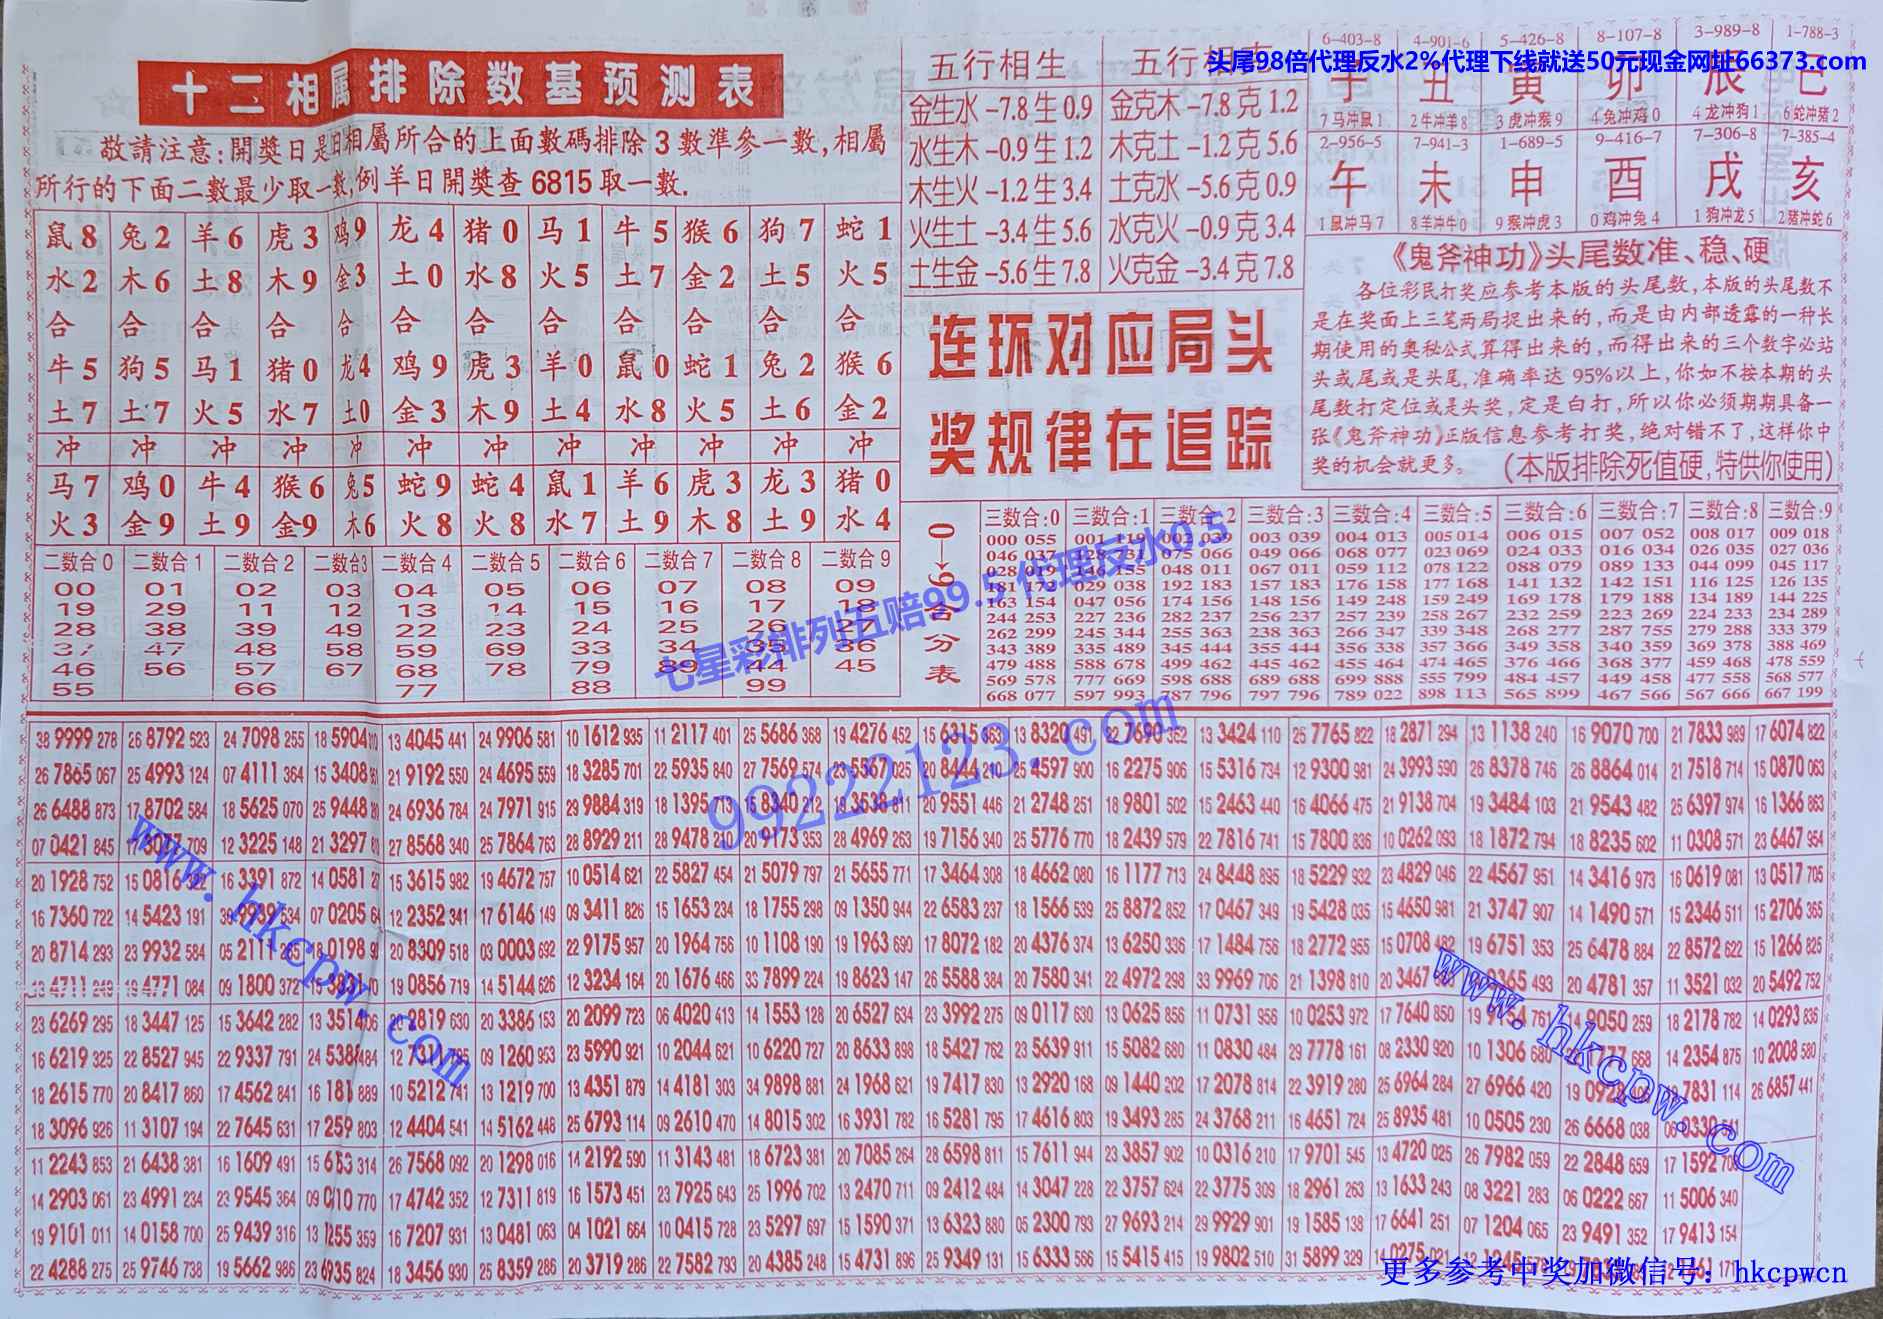 十二相属排除数基预测表
敬請注意:開獎日是旧相屬所合的上面數碼排除3數準參一數,相屬
所行的下面二數最少取一數,例羊日開獎查6815取一數.
鼠8 兔2 羊6 虎3 鸡9 龙4 猪0 马1 牛5 猴6 狗7 蛇1
水2 木6 土8 木9 金3 土0 水8 火5 土7 金2 土5 火5
合 合 合 合 合 合 合 合 合 合 合 合
牛5 狗5 马1 猪0 龙4 鸡9 虎3 羊0 鼠0 蛇1 兔2 猴6
土7 土7 火5 水7 土0 金3 木9 土4 水8 火5 土6 金2
冲 冲 冲 冲 冲 冲 冲 冲 冲 冲 冲 冲
马7 鸡0 牛4 猴6 兔5 蛇9 蛇4 鼠1 羊6 虎3 龙3 猪0
火3 金9 土9 金9 木6 火8 火8 水7 土9 木8 土9 水4
二数合0 二数合1 二数合2 二数合3 二数合4 二数合5 二数合6 二数合7 二数合8 二数合9
00 01 02 03 04 05 06 07 08 09
19 29 11 12 13 14 15 16 17 18
28 38 39 49 22 23 24 25 26
47 48 58 59 69 33 34 35 36
46 56 57 67 68 78 79 89 44 45
55 66 77 88 99
五行相生 五行相克
金生水–7.8生0.9 金克木–7.8克1.2
水生木–0.9生1.2 木克土–1.2克5.6
木生火–1.2生3.4 土克水–5.6克0.9
火生土–3.4生5.6 水克火–0.9克3.4
土生金–5.6生7.8 火克金–3.4克7.8
连环对应局头
奖规律在追踪
6-403-8 4-901-6 5-426-8 8-107-8 3-989-8 1-788-3
头尾98倍代理反水2%代理下线就送50元现金网址66373.com
子 丑 寅 卯 辰 巳
7马冲鼠1 2牛冲羊8 3虎冲猴9 4兔冲鸡0 4龙冲狗1 6蛇冲猪2
2-956-5 7-941-3 1-689-5 9-416-7 7-306-8 7-385-4
午 未 申 酉 戌 亥
1鼠冲马7 8羊冲牛0 9猴冲虎3 0鸡冲兔4 1狗冲龙5 2猪冲蛇6
《鬼斧神功》头尾数准、稳、硬
各位彩民打奖应参考本版的头尾数,本版的头尾数不
是在奖面上三笔两局捉出来的,而是由内部透露的一种长
期使用的奥秘公式算得出来的,而得出来的三个数字必站
头或尾或是头尾,准确率达95%以上,你如不按本期的头
尾数打定位或是头奖,定是白打,所以你必须期期具备一
张《鬼斧神功》正版信息参考打奖,绝对错不了,这样你中
奖的机会就更多。(本版排除死值硬,特供你使用)
0→9合分表
三数合:0 三数合:1 三数合:2 三数合:3 三数合:4 三数合:5 三数合:6 三数合:7 三数合:8 三数合:9
000 055 001 119 002 039 003 039 004 013 005 014 006 015 007 052 008 017 009 018
046 037 128 731 075 066 049 066 068 077 023 069 024 033 016 034 026 035 027 036
028 019 146 155 048 011 067 011 059 112 078 122 088 079 089 133 044 099 045 117
181 172 029 038 192 183 157 183 176 158 177 168 141 132 142 151 116 125 126 135
163 154 047 056 174 156 148 156 149 248 159 249 169 178 179 188 134 189 144 225
244 253 227 236 282 237 256 237 257 239 258 267 232 259 223 269 224 233 234 289
262 299 245 344 255 363 238 363 266 347 339 348 268 277 287 755 279 288 333 379
343 389 335 489 345 444 355 444 356 338 357 366 349 358 340 359 369 378 388 469
479 488 588 678 499 462 445 462 455 464 474 465 376 466 368 377 459 468 478 559
569 578 777 669 598 688 689 688 699 888 555 799 484 457 449 458 477 558 568 577
668 077 597 993 787 796 797 796 789 022 898 113 565 899 467 566 567 666 667 199
七星彩排列五赔99.5代理反水0.5
99922123.com
38 9999 278 26 8792 523 24 7098 255 18 5904 13 4045 441 24 9906 581 10 1612 935 11 2117 401 25 5686 368 19 4276 452 15 6315 13 8320 491 22 7690 352 13 3424 110 25 7765 822 18 2871 294 13 1138 240 16 9070 700 21 7833 989 17 6074 822
26 7865 067 25 4993 124 07 4111 364 15 3408 21 9192 550 24 4695 559 18 3285 701 22 5935 840 27 7569 574 23 5367 025 20 8444 210 25 4597 900 16 2275 906 15 5316 734 12 9300 981 24 3993 590 26 8378 746 26 8864 014 21 7518 714 15 0870 063
26 6488 873 17 8702 584 18 5625 070 25 9448 24 6936 784 24 7971 915 29 9884 319 18 1395 713 15 8340 212 19 3538 20 9551 446 21 2748 251 18 9801 502 15 2463 440 16 4066 475 21 9138 704 19 3484 103 21 9543 482 25 6397 974 16 1366 863
07 0421 845 709 12 3225 148 21 3297 27 8568 340 25 7864 763 28 8929 211 28 9478 20 9173 353 28 4969 263 19 7156 340 25 5776 770 18 2439 579 22 7816 741 15 7800 836 10 0262 093 18 1872 794 18 8235 602 11 0308 571 23 6467 954
20 1928 752 15 0816 16 3391 872 14 0581 15 3615 982 19 4672 757 10 0514 621 22 5827 454 21 5079 797 21 5655 771 17 3464 308 18 4662 080 16 1177 713 24 8448 895 18 5229 932 23 4829 046 22 4567 951 14 3416 973 16 0619 081 13 0517 705
16 7360 722 14 5423 191 9939 534 07 0205 12 2352 341 17 6146 149 09 3411 826 15 1653 234 18 1755 298 09 1350 944 22 6583 237 18 1566 539 25 8872 852 17 0467 349 19 5428 035 15 4650 981 21 3747 907 14 1490 571 15 2346 511 15 2706 365
20 8714 293 23 9932 584 05 2111 0198 20 8309 518 03 0003 692 22 9175 957 20 1964 756 10 1108 190 19 1963 690 17 8072 182 20 4376 374 13 6250 336 17 1484 756 18 2772 955 15 0708 19 6751 353 25 6478 884 22 8572 622 15 1266 825
4711 19 4771 084 09 1800 372 19 0856 719 14 5144 626 12 3234 164 20 1676 466 33 7899 224 19 8623 147 26 5588 384 20 7580 341 22 4972 298 33 9969 706 21 1398 810 20 3467 0365 493 20 4781 357 11 3521 032 20 5492 752
23 6269 295 18 3447 125 15 3642 282 13 3514 2819 630 20 3386 153 20 2099 723 06 4020 413 14 1553 128 20 6527 634 23 3992 275 09 0117 630 13 0625 856 11 0731 956 10 0253 972 17 7640 850 761 9050 259 18 2178 782 14 0293 835
16 6219 325 22 8527 945 22 9337 791 24 538 09 1260 953 23 5990 921 10 2044 621 10 6220 727 20 8633 898 18 5427 762 23 5639 911 15 5082 680 11 0830 484 29 7778 161 08 2330 920 10 1306 668 14 2354 875 10 2008 580
18 2615 770 20 8417 860 17 4562 841 16 181 889 10 5212 741 13 1219 700 13 4351 879 14 4181 303 34 9898 881 24 1968 621 19 7417 830 13 2920 168 09 1440 202 17 2078 814 22 3919 280 25 6964 284 27 6966 420 7831 114 26 6857 441
18 3096 926 11 3107 194 22 7645 631 17 259 803 12 4404 541 14 5162 448 25 6793 114 09 2610 470 14 8015 302 16 3931 782 16 5281 795 17 4616 803 19 3493 285 24 3768 211 16 4651 724 25 8935 481 10 0505 230 26 6668 038 06 0330
11 2243 853 21 6438 381 16 1609 491 15 653 314 26 7568 092 20 1298 016 14 2192 590 11 3143 481 18 6723 381 20 7085 264 28 6598 811 15 7611 944 23 3857 902 10 0316 210 17 9701 545 13 4720 025 26 7982 059 22 2848 659 17 1592
14 2903 061 23 4991 234 23 9545 364 09 010 770 17 4742 352 12 7311 819 16 1573 451 23 7925 643 25 1996 702 13 2470 711 09 2412 484 14 3047 228 22 3757 624 22 3775 309 18 2961 263 13 1633 243 08 3221 283 06 0222 667 11 5006 340
19 9101 011 14 0158 700 25 9439 316 13 1255 359 16 7207 931 13 0481 063 04 1021 664 10 0415 728 23 5297 697 15 1590 371 13 6323 880 05 2300 793 27 9693 214 29 9929 901 19 1585 138 17 6641 251 07 1204 065 23 9491 352 17 9413 154
22 4288 275 25 9746 738 19 5662 986 23 6935 824 18 3456 930 25 8359 286 20 3719 286 22 7582 793 20 4385 248 15 4731 896 25 9349 131 15 6333 566 15 5415 415 19 9802 510 31 5899 329 14 0275 171
www.hkcpw.com
www.hkcpw.com
更多参考中奖加微信号: hkcpwcn